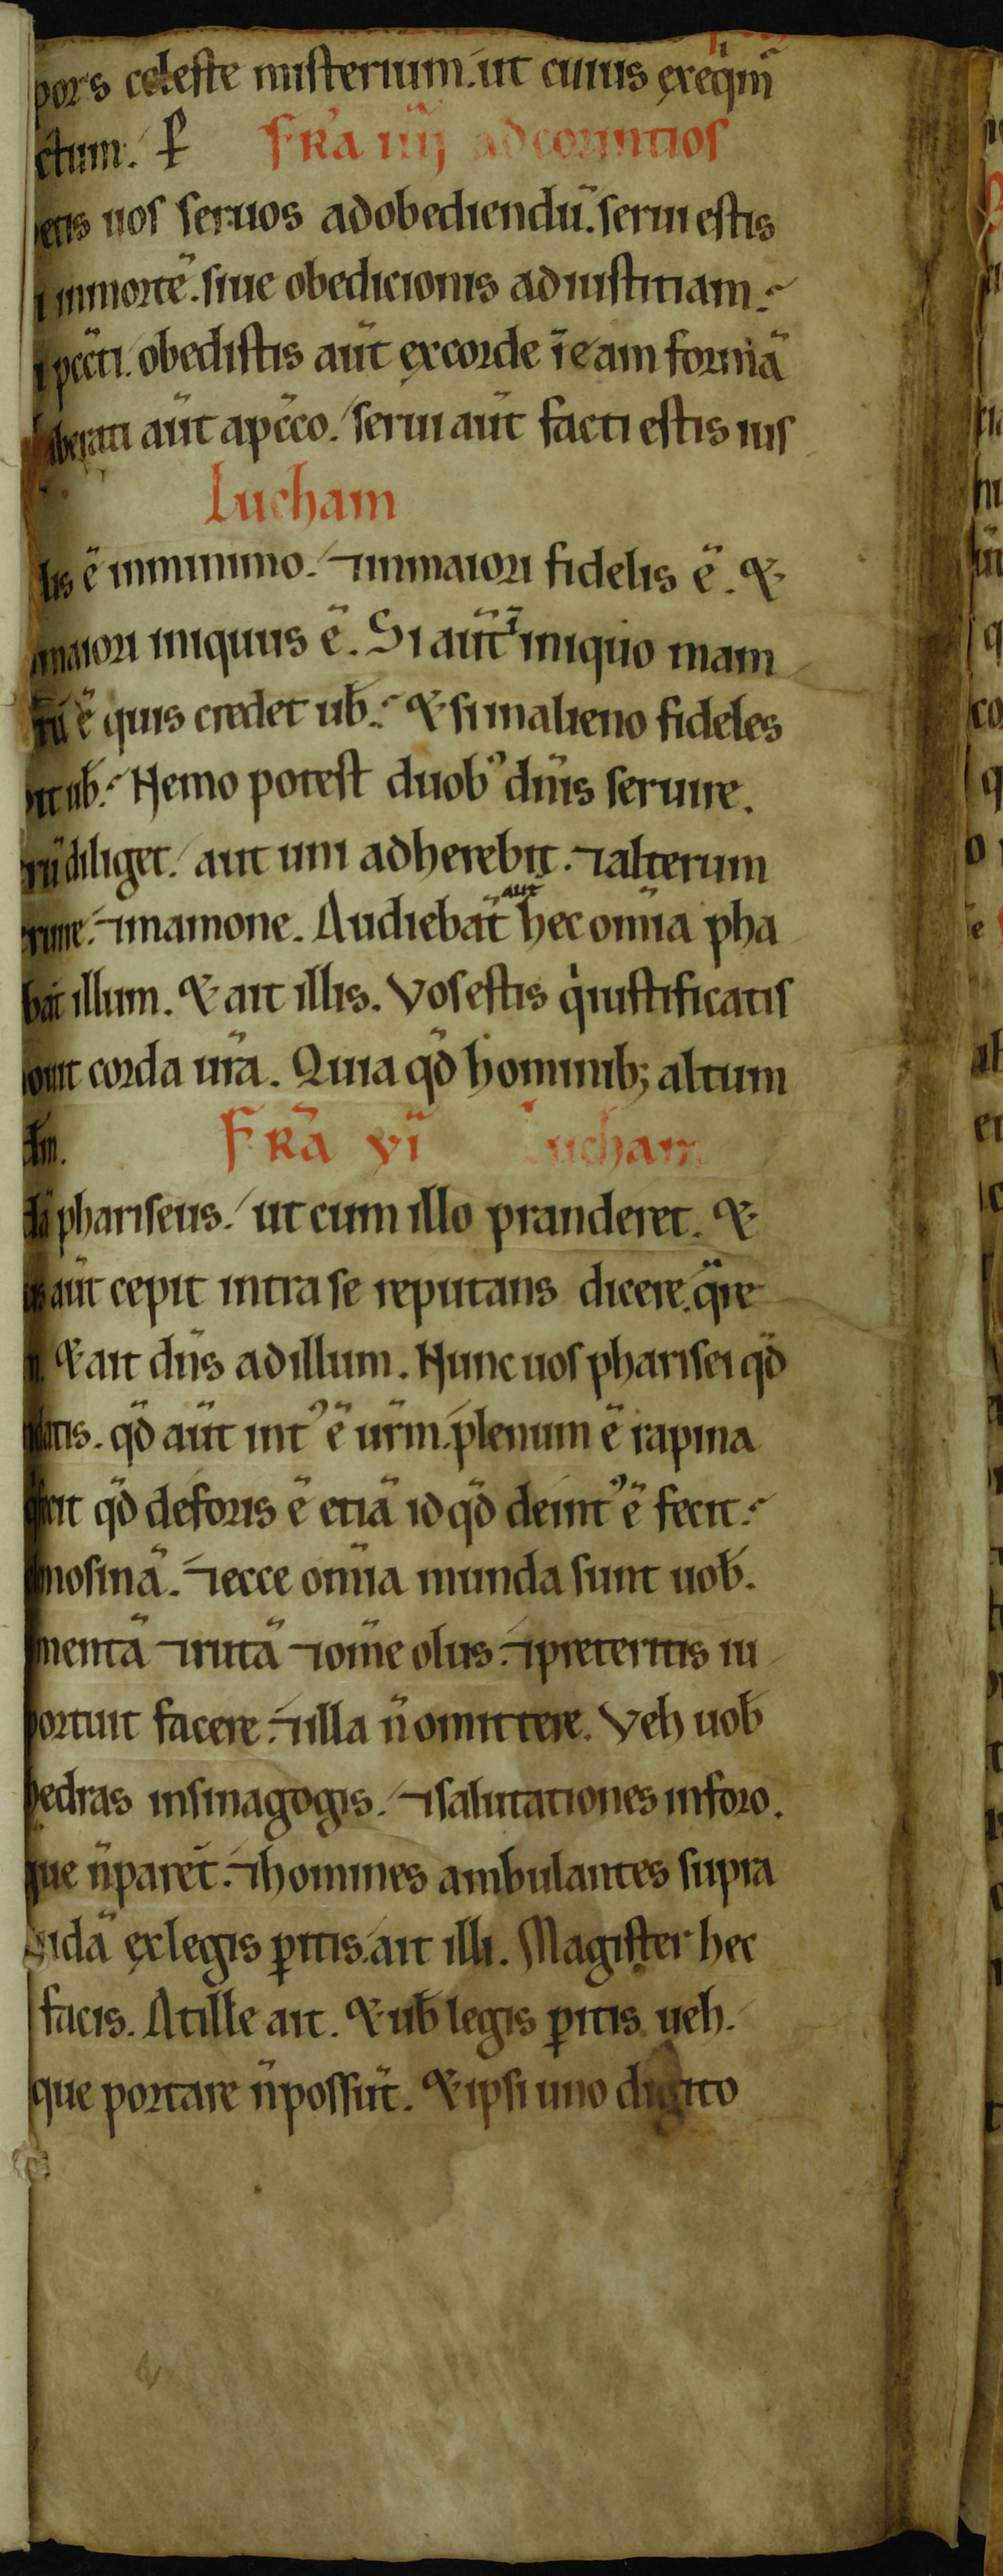 pors celeste misterium. ut cuius exeqim̄
ctum. P̵ FR̄a iiij ad corintios
etis uos seruos ad obediendū. serui estis
i in mortē. siue obedicionis ad iustitiam.
i pecc̄ti. obedistis aūt ex corde ī eam formā
liberati aūt a pc̄co. serui aūt facti estis ius
Lucham
lis ē in minimo. ⁊ in maiori fidelis ē. &
maiori iniquus ē. Si aūt ī iniquo mam
rū ē quis credet ub̄. & si in alieno fideles
it ub̄. Nemo potest duobꝰ dn̄is seruire.
rū diliget. aut uni adherebit. ⁊ alterum
ruire. ⁊ mamone. Audiebāt aut̄ hec om̄ia pha
bāt illum. & ait illis. Vos estis qi iustificatis
ouit corda ur̄a. Quia qd̄ hominib; altum
dm̄. FR̄a vī Lucham
dā phariseus. ut cum illo pranderet. &
us aūt cepit intra se reputans dicere. qīre
n. & ait dn̄s ad illum. Nunc uos pharisei qd̄
datis. qd̄ aūt intꝰ ē ur̄m. plenum ē rapina
fecit qd̄ deforis ē etiā id qd̄ deintꝰ ē fecit.
mosinā. ⁊ ecce om̄ia munda sunt uob̄.
mentā ⁊ rutā ⁊ om̄e olus. ⁊ preteritis iu
portuit facere. ⁊ illa n̄ omittere. Veh uob̄
hedras in sinagogis. ⁊ salutationes in foro.
que n̄ parēt. ⁊ homines ambulantes supra
uidā ex legis ꝑitis. ait illi. Magister hec
facis. At ille ait. & ub̄ legis ꝑitis ueh.
que portare n̄ possūt. & ipsi uno digito